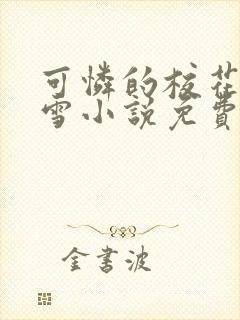 可憐的校花
雪小說免費
金書波